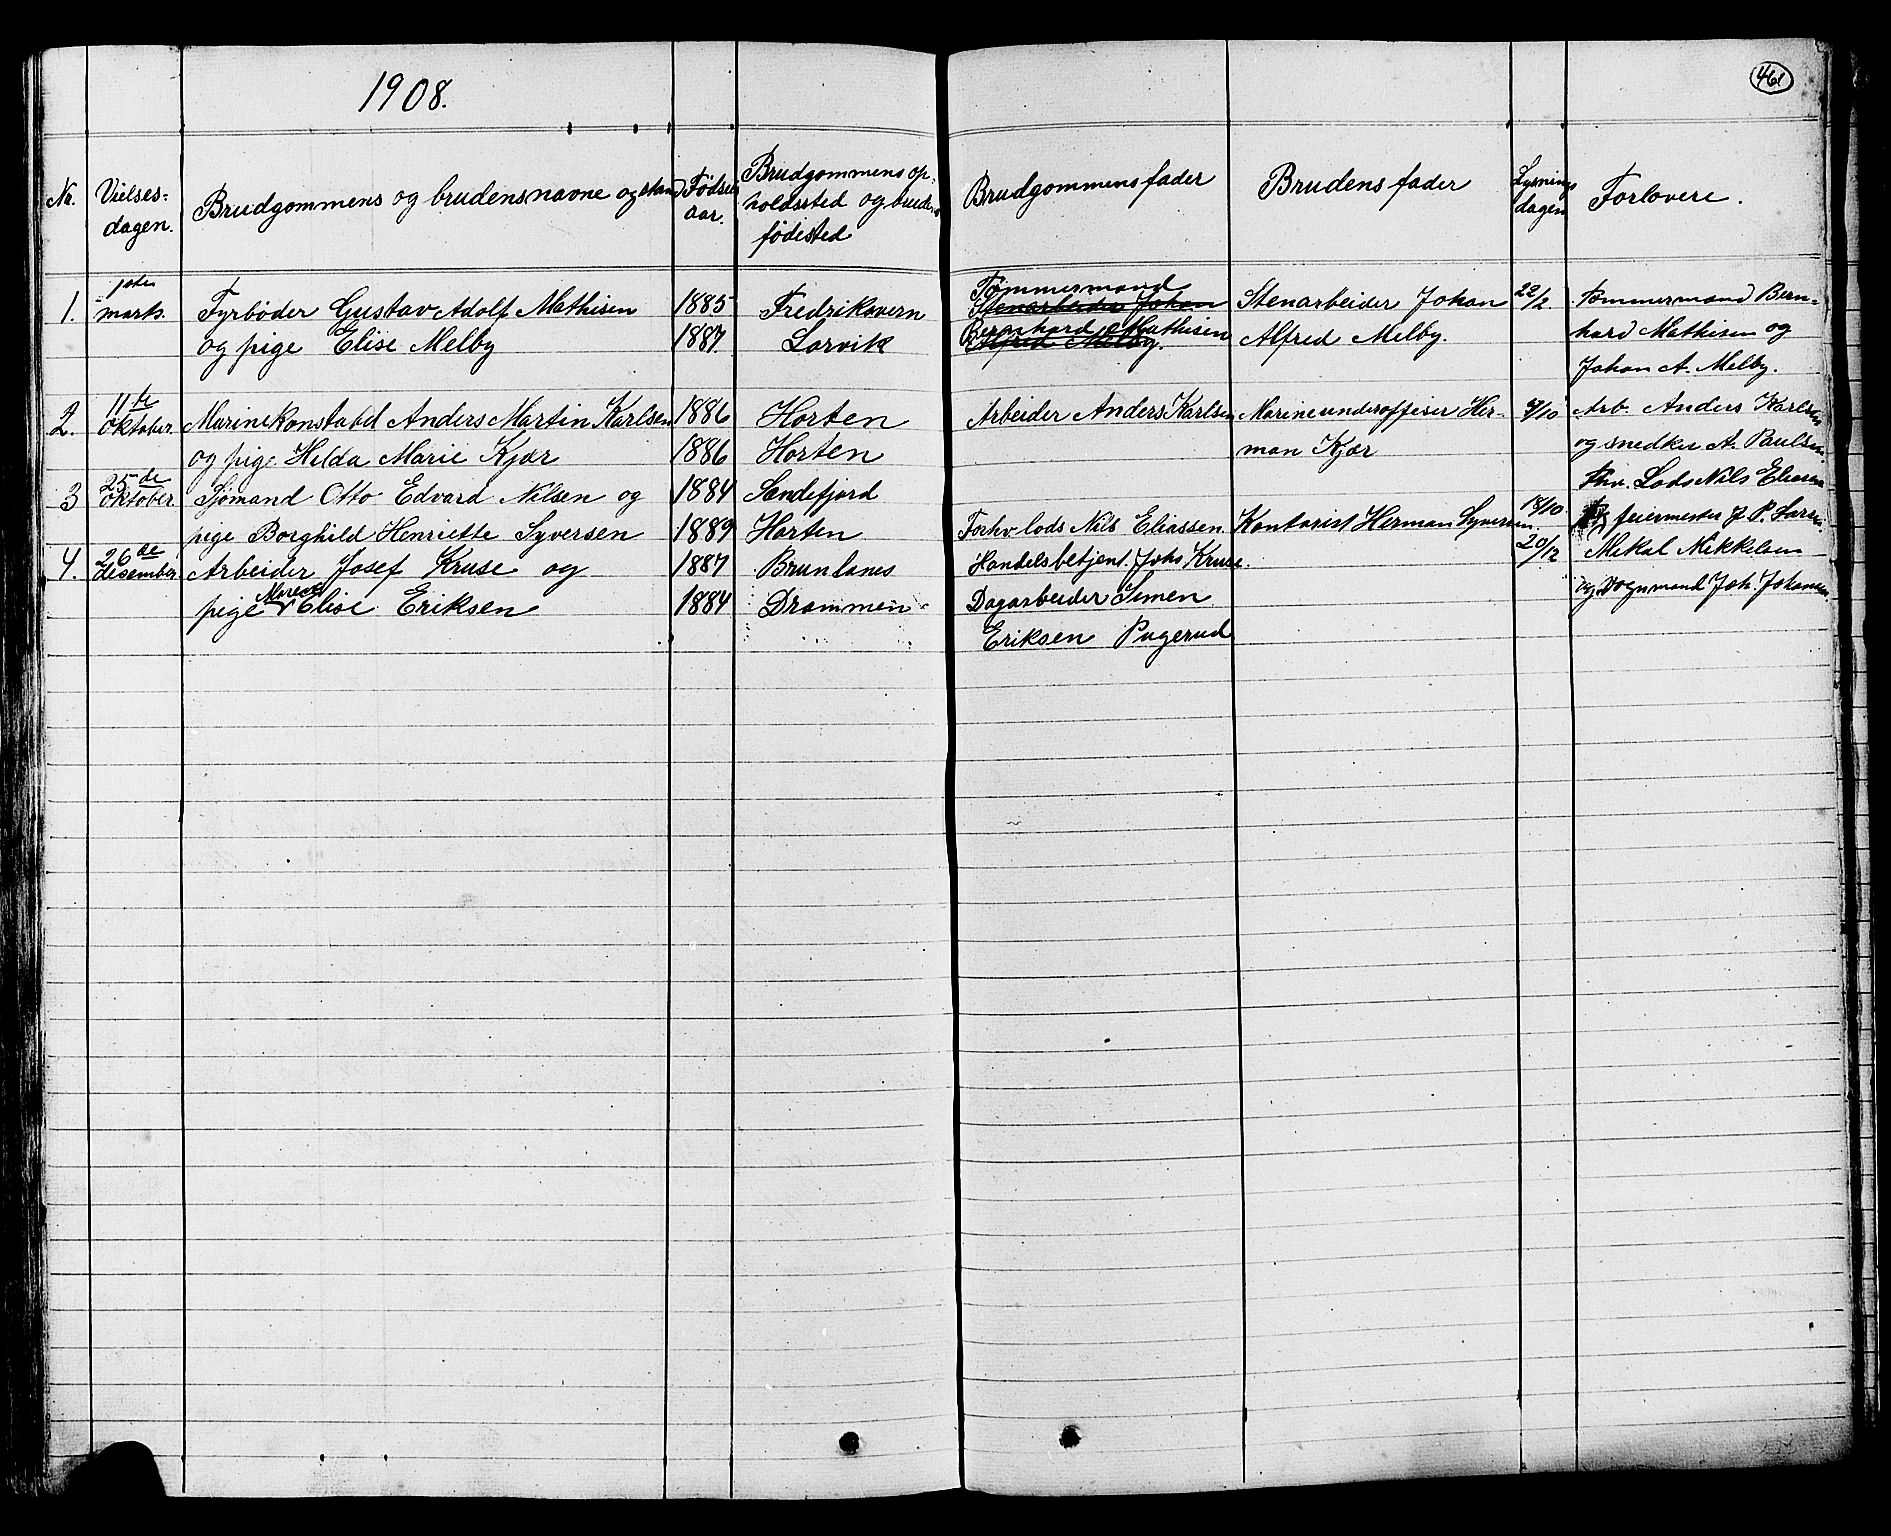 1908.
461
No. Vielses- dagen. Brudgommens og brudens navne og stand Fødsels aar. Brudgommens op- holdssted og brudens fødested Brudgommens fader Brudens fader Lysnings dagen Forlovere.
1. 1ste marts. Fyrbøder Gustav Adolf Mathisen 1885 Fredriksvern Tømmermand Stenarbeider Johan Stenarbeider Johan 22/2 Tømmermand Bern-
og pige Elise Melby 1887. Larvik Bernhard Mathisen Alfred Melby. Alfred Melby. hard Mathisen og
Johan A. Melby.
2. 11te Oktober. Marinekonstabel Anders Martin Karlsen 1886 Horten Arbeider Anders Karlsen Marineunderoffiser Her- 4/10 Arb. Anders Karlsen
og pige Hilda Marie Kjær 1886 Horten man Kjær og snedker A. Paulsen.
3 25de Oktober. Sjømand Otto Edvard Nilsen og 1884 Sandefjord Fhv. Lods Nils Eliassen
pige Borghild Henriette Syversen 1889 Horten Forhv. lods Nils Eliassen. Kontorist Herman Syversen. 18/10 feiermester J. P. Larsen
4. 26de Desember Arbeider Josef Kruse og 1887 Brunlanes Handelsbetjent Johs Kruse. 20/12 Mikal Mikkelsen
pige Marece Elise Eriksen 1884 Drammen Dagarbeider Simen og Vognmand Joh. Johansen.
Eriksen Pugerud